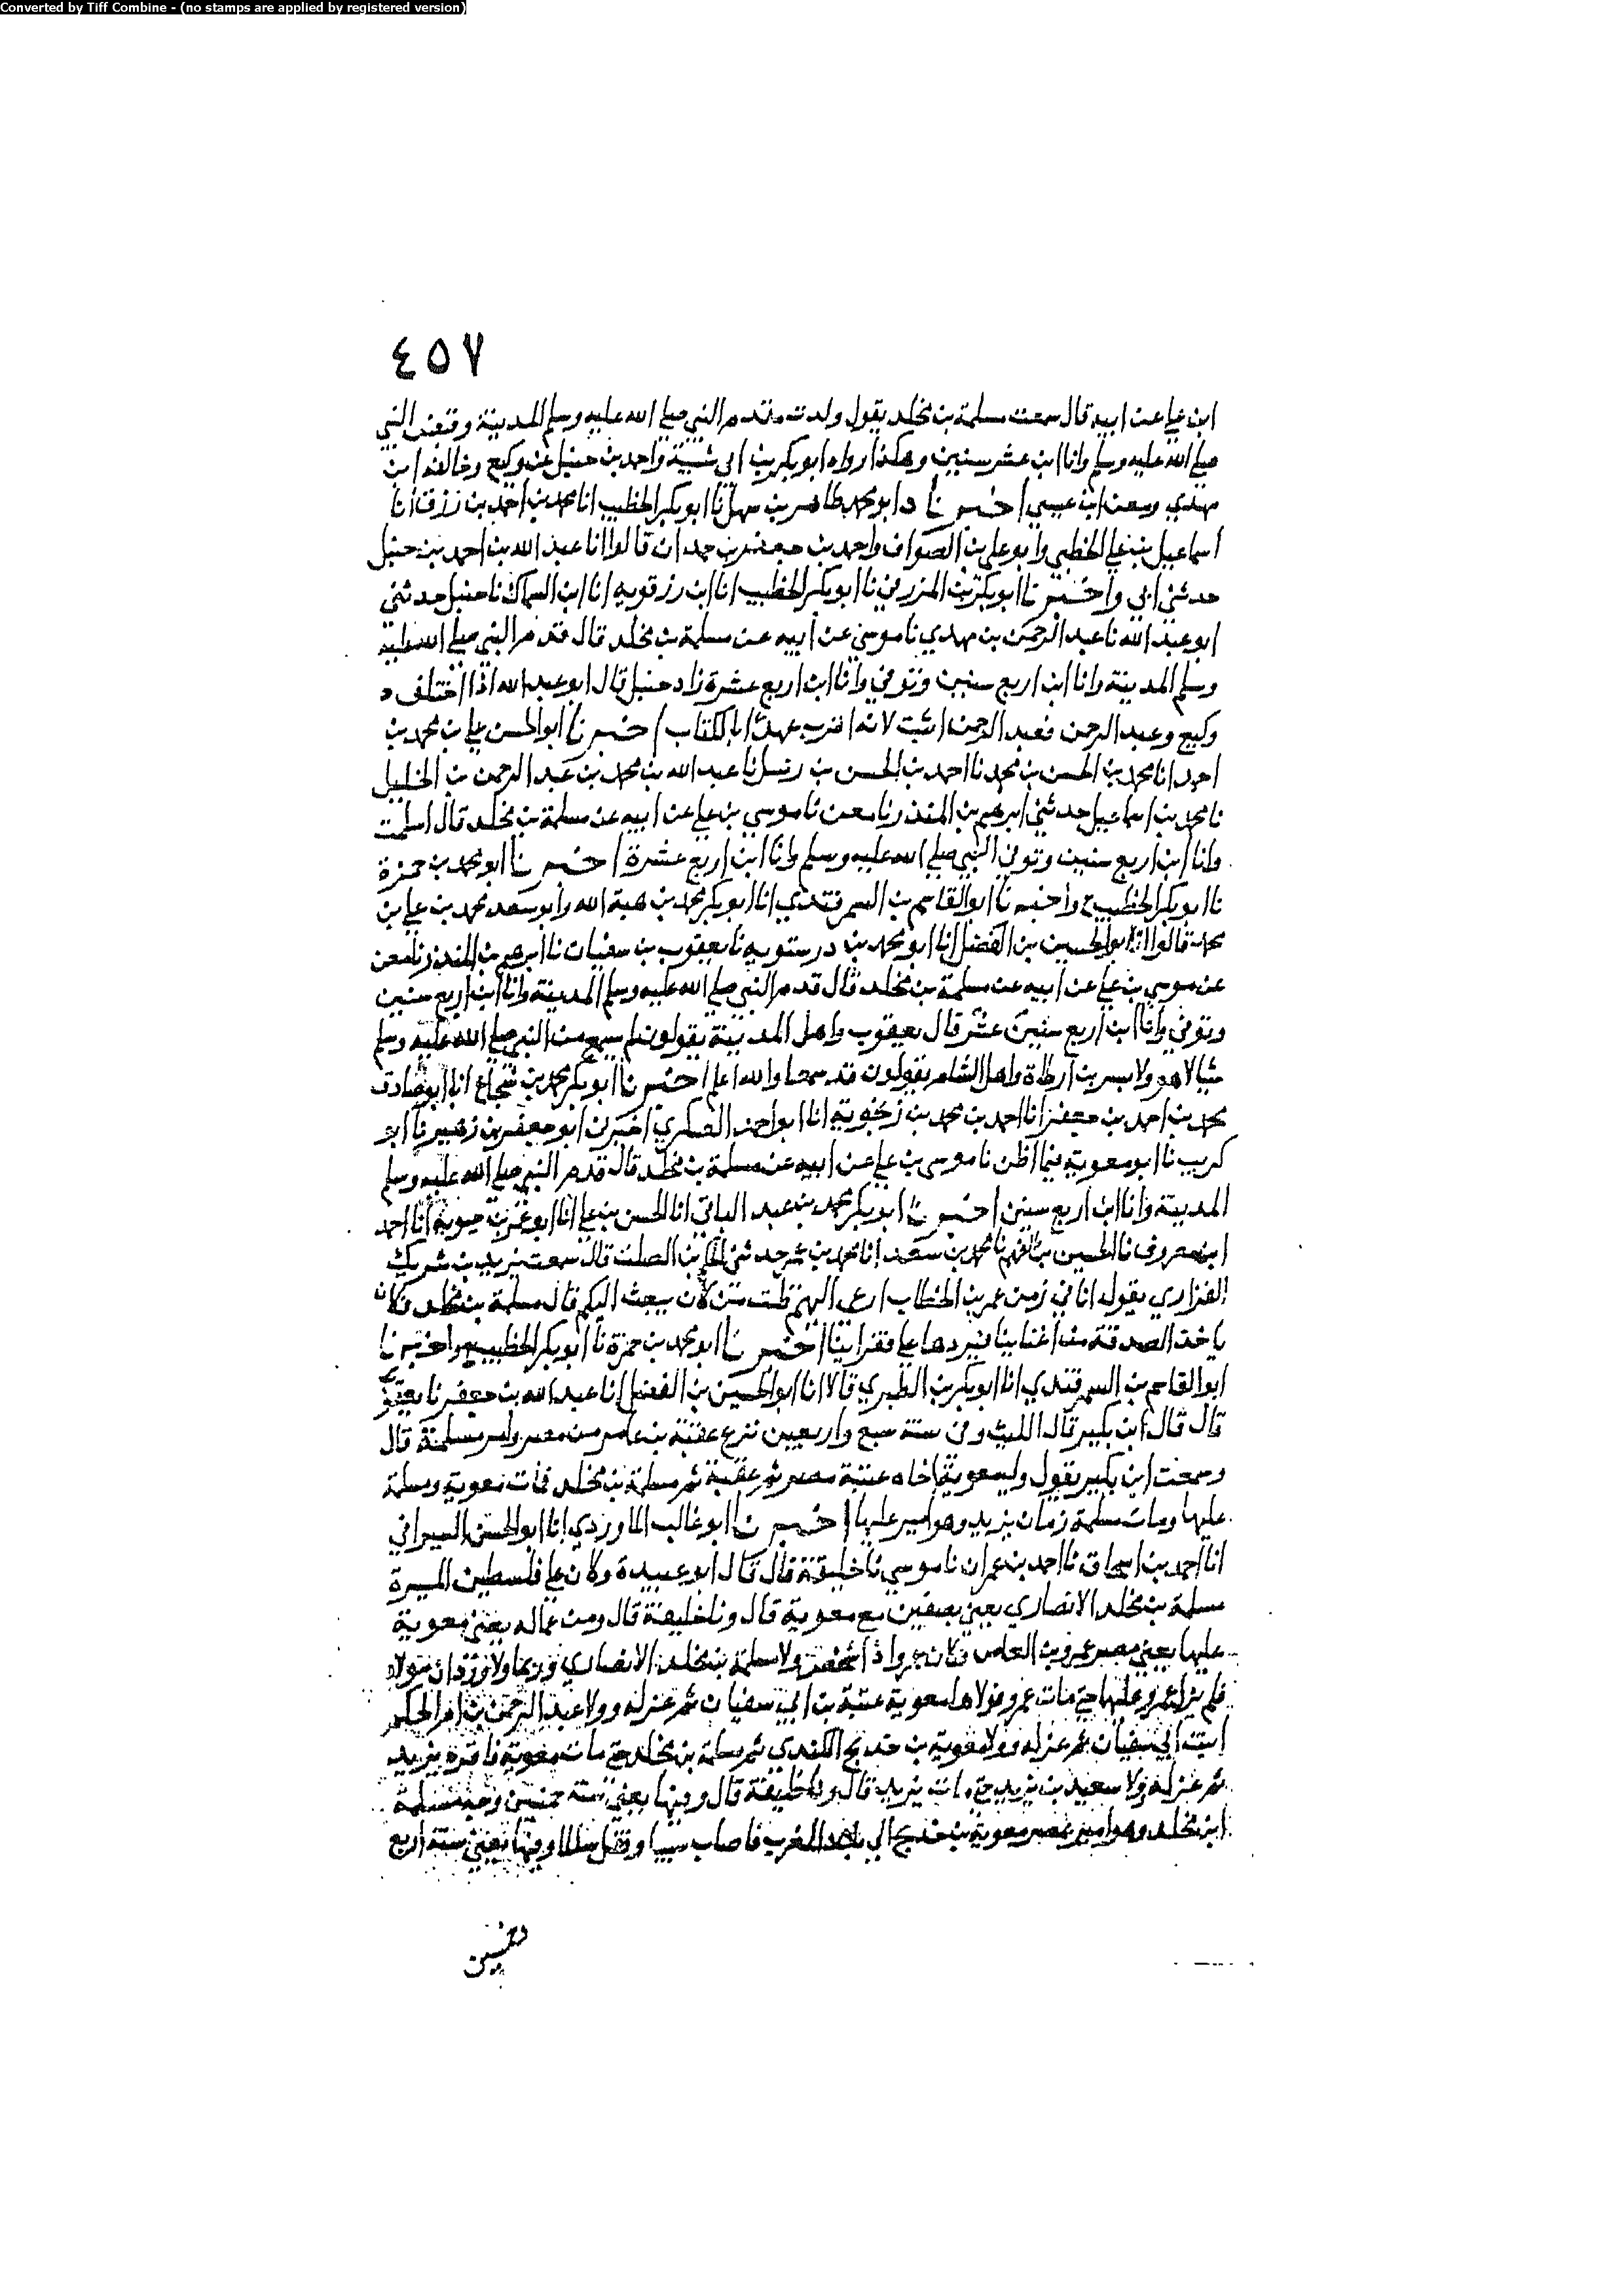 Converted by Tiff Combine - (no stamps are applied by registered version)
٤٥٧
ابن علي عن ابيه قال سمعت مسلمة بن مخلد يقول ولدت مقدم النبي صلي الله عليه وسلم المدينة وقبض النبي
صلي الله عليه وسلم وانا ابن عشر سنين وهكذا رواه ابو بكر بن ابي شيبة واحمد بن حنبل عن وكيع وخالفه ابن
مهدي ومعن ابن عيسي اخبرنا ابو محمد طاهر بن سهل نا ابو بكر الخطيب انا محمد بن احمد بن رزق انا
اسماعيل بن علي الخطبي وابو علي بن الصواف واحمد بن جعفر بن حمدان قالوا انا عبد الله بن احمد بن حنبل
حدثني ابي واخبرنا ابو بكر بن المزرفي نا ابو بكر الخطيب انا ابن رزقويه انا ابن السماك نا حنبل حدثني
ابو عبد الله نا عبد الرحمن بن مهدي نا موسي عن ابيه عن مسلمة بن مخلد قال قدم النبي صلي الله عليه
وسلم المدينة وانا ابن اربع سنين وتوفي وانا ابن اربع عشرة زاد حنبل قال ابو عبد الله اذا اختلف
وكيع وعبد الرحمن فعبد الرحمن اثبت لانه اقرب عهدا بالكتاب اخبرنا ابو الحسن علي بن محمد بن
احمد انا محمد بن الحسن بن محمد نا احمد بن الحسن بن زنبيل نا عبد الله بن محمد بن عبد الرحمن بن الخليل
نا محمد بن اسماعيل حدثني ابرهيم بن المنذر نا معن نا موسي بن علي عن ابيه عن مسلمة بن مخلد قال اسلمت
وانا ابن اربع سنين وتوفي النبي صلي الله عليه وسلم وانا ابن اربع عشرة اخبرنا ابو محمد بن حمزة
نا ابو بكر الخطيب ح واخبرنا ابو القاسم بن السمرقندي انا ابو بكر محمد بن هبة الله وابو سعد محمد بن علي بن
محمد قالوا انا ابو الحسين بن الفضل انا ابو محمد بن درستويه نا يعقوب بن سفيان نا ابرهيم بن المنذر نا معن
عن موسي بن علي عن ابيه عن مسلمة بن مخلد قال قدم النبي صلي الله عليه وسلم المدينة وانا ابن اربع سنين
وتوفي وانا ابن اربع سنين عشر قال يعقوب واهل المدينة يقولون لم يسمع من النبي صلي الله عليه وسلم
شيا لا هو ولا بسر بن ارطاة واهل الشام يقولون قد سمعا والله اعلم اخبرنا ابو بكر محمد بن شجاع انا ابو صادق
محمد بن احمد بن جعفر انا احمد بن محمد بن زنجوية انا ابو احمد العسكري اخبرني ابو جعفر بن زهير نا ابو
كريب نا ابو معوية فيما اظن نا موسي بن علي عن ابيه عن مسلمة بن مخلد قال قدم النبي صلي الله عليه وسلم
المدينة وانا ابن اربع سنين اخبرنا ابو بكر محمد بن عبد الباقي انا الحسن بن علي انا ابو عمر بن حيوية انا احمد
ابن معروف نا الحسين بن الفهم نا محمد بن سعد انا محمد بن عمر حدثني بن الصلت قال سمعت يزيد بن شريك
الفزاري يقول انا في زمن عمر بن الخطاب ارعي البهم قلت من كان يبعث اليكم قال مسلمة بن مخلد فكان
ياخذ الصدقة من اغنيائنا فيردها علي فقرائنا اخبرنا ابو محمد بن حمزة نا ابو بكر الخطيب ح واخبرنا
ابو القاسم بن السمرقندي انا ابو بكر بن الطبري قالا انا ابو الحسين بن الفضل انا عبد الله بن جعفر نا يعقوب
قال قال ابن بكير قال الليث وفي سنة سبع واربعين نزع عقبة بن عامر من مصر وامر مسلمة قال
وسمعت ابن بكير يقول ولي معوية اخاه عتبة مصر ثم عقبة ثم مسلمة بن مخلد فمات معوية ومسلمة
عليها ومات مسلمة زمان يزيد وهو امير عليها اخبرنا ابو غالب الماوردي انا ابو الحسن السيرافي
انا احمد بن اسحاق نا احمد بن عمران نا موسي نا خليفة قال قال ابو عبيدة وكان علي فلسطين الميسرة
مسلمة بن مخلد الانصاري يعني بصفين مع معوية قال ونا خليفة قال ومن عماله يعني معوية
عليها يعني مصر عمرو بن العاص فكان عمرو اذا شخص ولا مسلمة بن مخلد الانصاري وربما ولا وردان مولاه
فلم يزل عمرو عليها حتي مات عمرو فولاها معوية عتبة بن ابي سفيان ثم عزله وولا عبد الرحمن بن ام الحكم
ابنت ابي سفيان ثم عزله وولا معوية بن حديج الكندي ثم مسلمة بن مخلد حتي مات معوية فاقره يزيد
ثم عزله وولا سعيد بن يزيد حتي مات يزيد قال ونا خليفة قال وفيها يعني سنة خمسين وجه مسلمة
ابن مخلد وهو امير مصر معوية بن حديج الي بلاد المغرب فاصاب سبيا وقفل سالما وفيها يعني سنة اربع
وخمسين